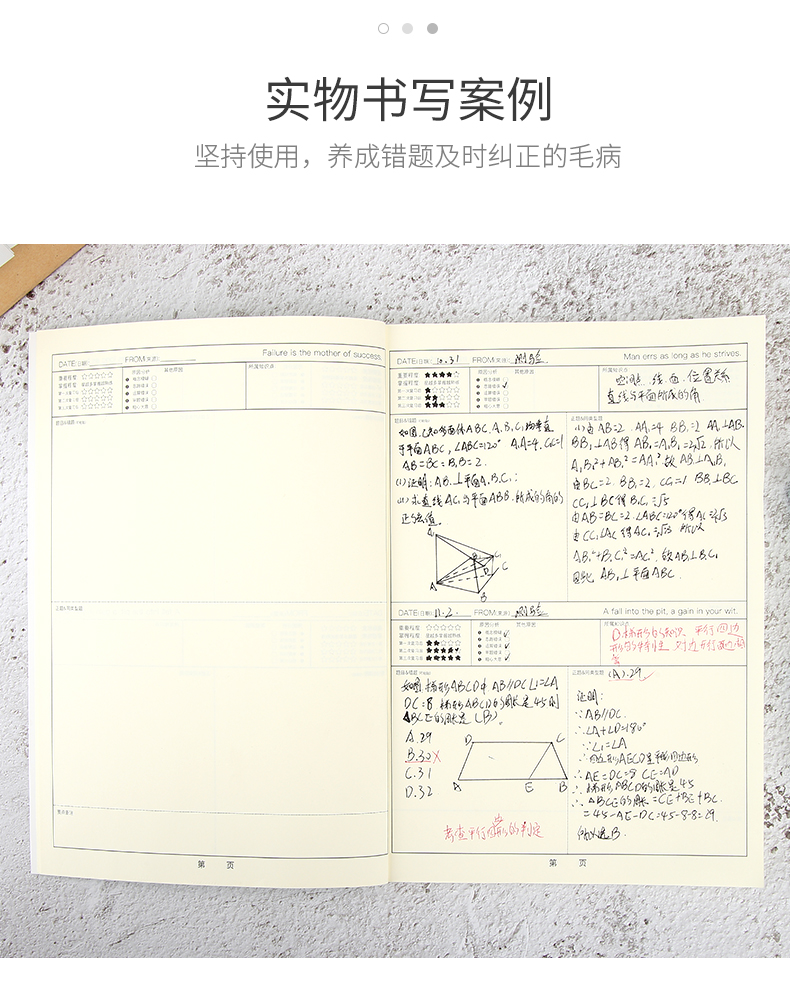 实物书写案例
坚持使用，养成错题及时纠正的毛病
DATE(日期):
FROM(来源):
Failure is the mother of success.
重要程度
原因分析
其他原因
所属知识点
题目&错题
正题&同类型题
第 页
DATE(日期): 10.31
FROM(来源): 测验
Man errs as long as he strives.
重要程度
原因分析
其他原因
所属知识点
空间点、线、面、位置关系
直线与平面所成的角
题目&错题
如图,已知多面体ABC A₁B₁C₁均垂直
于平面ABC,∠ABC=120° A₁A=4, CC₁=1
AB=BC=B₁B=2.
(1)证明:AB₁⊥平面A₁B₁C₁;
(2)求直线AC₁与平面ABB₁所成的角的
正弦值。
A₁
B₁
C₁
D
A
C
B
正题&同类型题
(1)由AB=2. AA₁=4 BB₁=2 AA₁⊥AB.
BB₁⊥AB得AB₁=A₁B₁=2√2.所以
A₁B₁²+AB₁²=AA₁².故AB₁⊥A₁B₁
由BC=2. BB₁=2. CC₁=1 BB₁⊥BC
CC₁⊥BC得B₁C₁=√5
由AB=BC=2.∠ABC=120°得AC=2√3
由CC₁⊥AC得AC₁=√13 所以
AB₁²+B₁C₁²=AC₁².故AB₁⊥B₁C₁
因此AB₁⊥平面A₁B₁C₁.
DATE(日期): 11.2.
FROM(来源): 测验
A fall into the pit, a gain in your wit.
重要程度
原因分析
其他原因
所属知识点
题目&错题
如图梯形ABCD中 AB//DC ∠1=∠A
DC=8 梯形ABCD的周长是45则
△BCE的周长是(B)。
A.29
B.30×
C.31
D.32
D
C
A
E
B
正题&同类型题
(A).29
证明:
∵AB//DC.
∴∠A+∠D=180°
∵∠1=∠A
∴四边形AECD是平行四边形
∴AE=DC=8 CE=AD
∴梯形ABCD的周长是45
∴△BCE的周长=CE+BE+BC.
=45-AE-DC=45-8-8=29.
所以选B.
第 页